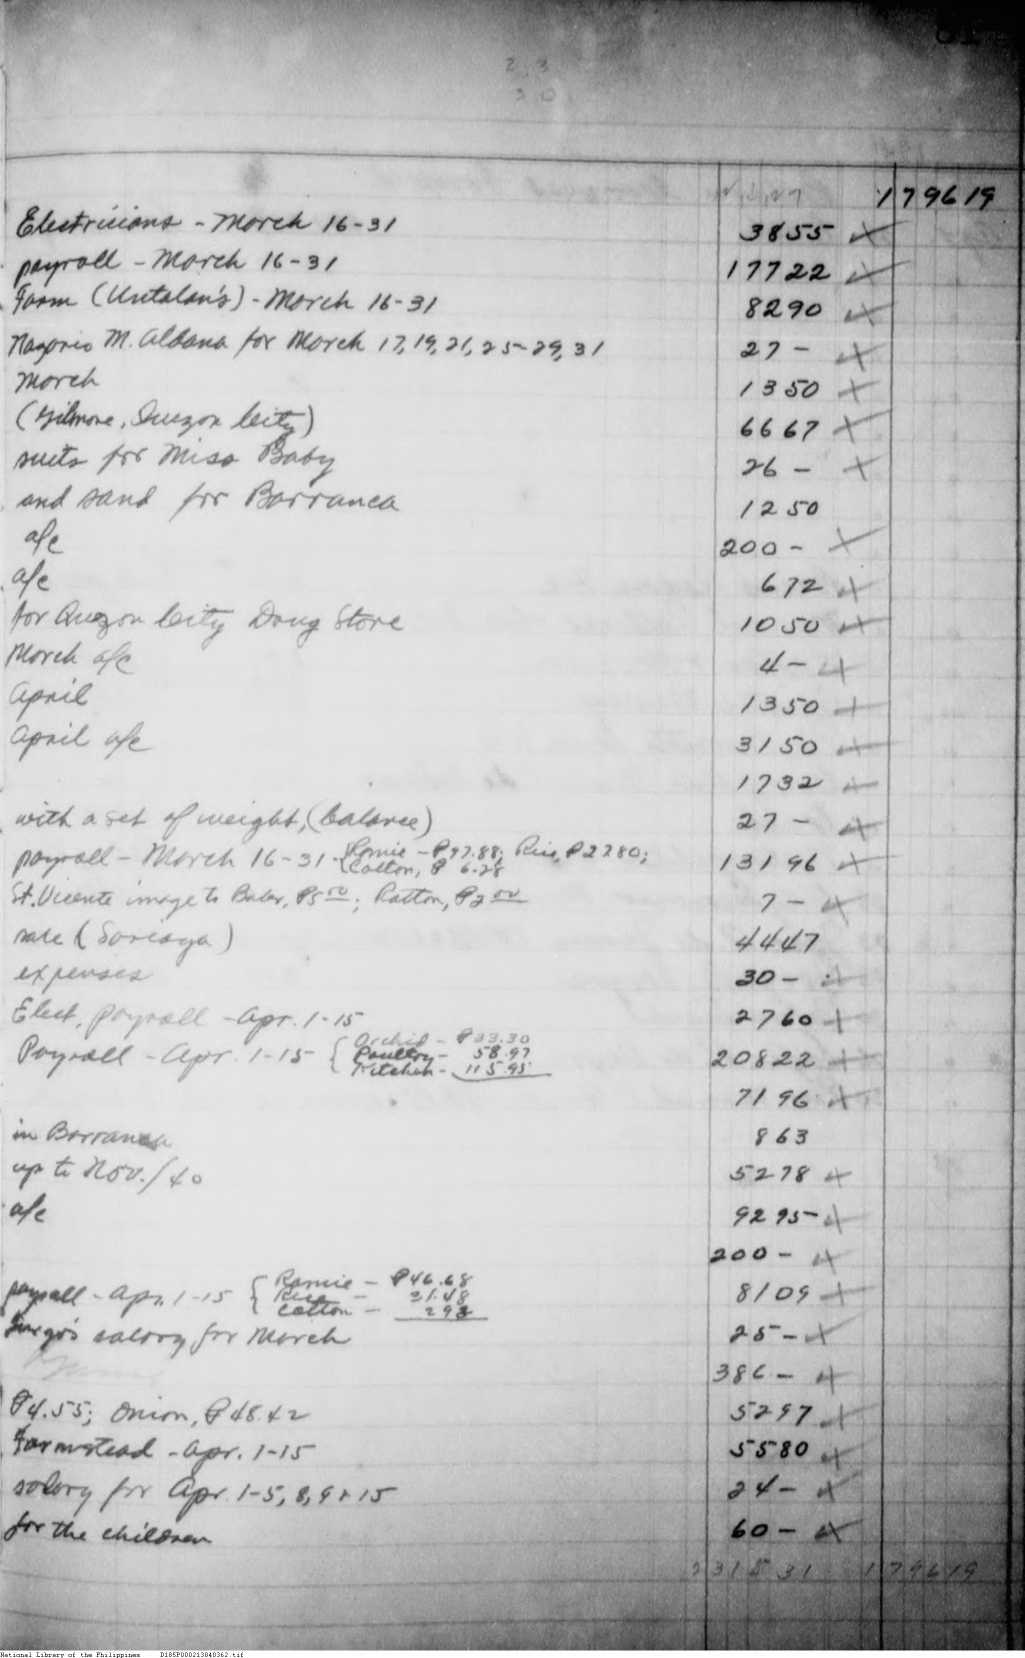 2 3
3 0
179619
Electricians - March 16-31 3855
payroll - March 16-31 17722
Farm (Untalan's) - March 16-31 8290
Nazario M. Aldana for March 17, 19, 21, 25-29, 31 27 -
March 1350
(Gilmore, Quezon City) 6667
suits for Miss Baby 26 -
and sand for Barranca 1250
a/c 200 -
a/c 672
for Quezon City Drug Store 1050
March a/c 4 -
April 1350
April a/c 3150
1732
with a set of weight, (balance) 27 -
payroll - March 16-31 { Ramie - ₱97.88; Rice, ₱27.80; 13196
Cotton, ₱ 6.28
St. Vicente image to Baler, ₱5.00; Ratton, ₱2.00 7 -
sale (Soriaga) 4447
expenses 30 -
Elect. payroll - Apr. 1-15 2760
Payroll - Apr. 1-15 { Orchid - ₱33.30 20822
Poultry - 58.97
Kitchen - 115.95
7196
in Barranca 863
up to Nov./40 5278
a/c 9295 -
200 -
payroll - Apr. 1-15 { Ramie - ₱46.68 8109
Rice - 31.48
Cotton - 293
salary for March 25 -
386 -
₱4.55; Onion, ₱48.42 5297
Farmstead - Apr. 1-15 5580
salary for Apr. 1-5, 8, 9 + 15 24 -
for the children 60 -
231531 179619
National Library of the Philippines D185P000213040362.tif